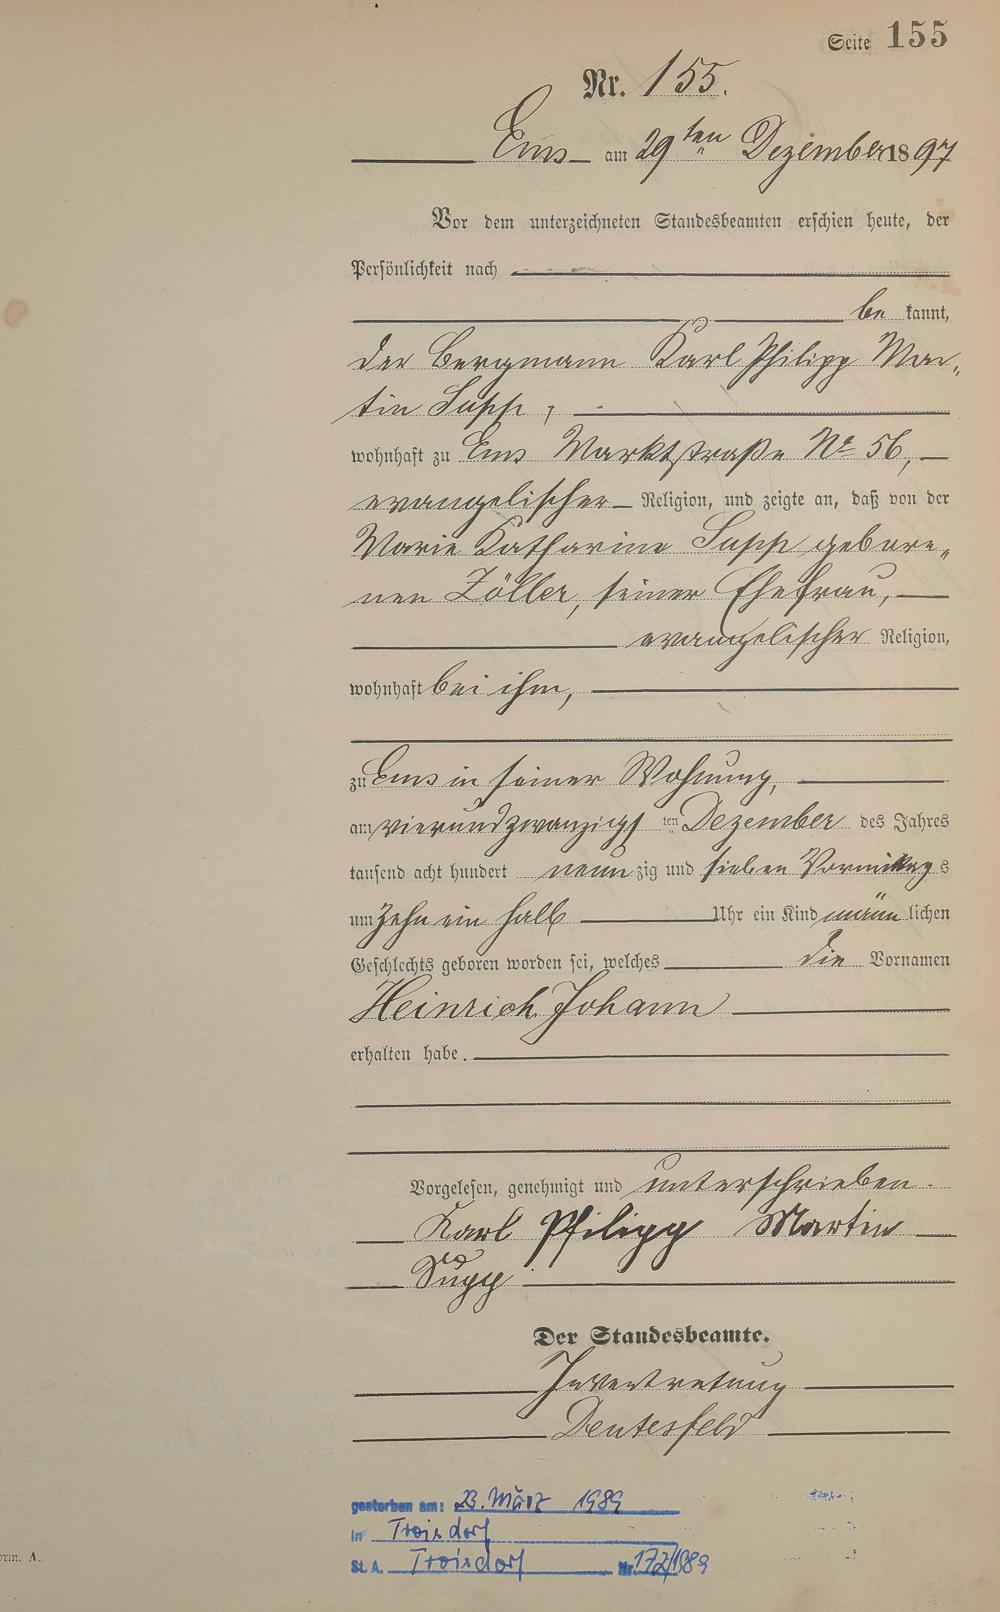 Seite 155
Nr. 155.
Ems am 29ten Dezember 1897
Vor dem unterzeichneten Standesbeamten erschien heute, der
Persönlichkeit nach
be kannt,
der Bergmann Karl Philipp Mar„
tin Supp,
wohnhaft zu Ems Marktstraße No 56,
evangelischer Religion, und zeigte an, daß von der
Marie Katharine Supp gebore„
nen Zöller, seiner Ehefrau,
evangelischer Religion,
wohnhaft bei ihm,
zu Ems in seiner Wohnung,
am vierundzwanzigsten Dezember des Jahres
tausend acht hundert neunzig und sieben Vormittags
um zehn ein halb Uhr ein Kind männlichen
Geschlechts geboren worden sei, welches die Vornamen
Heinrich Johann
erhalten habe.
Vorgelesen, genehmigt und unterschrieben.
Karl Philipp Martin
Supp
Der Standesbeamte.
In Vertretung
gestorben am: 23. März 1989
in Troisdorf
St. A. Troisdorf Nr. 172/1989
orm. A.